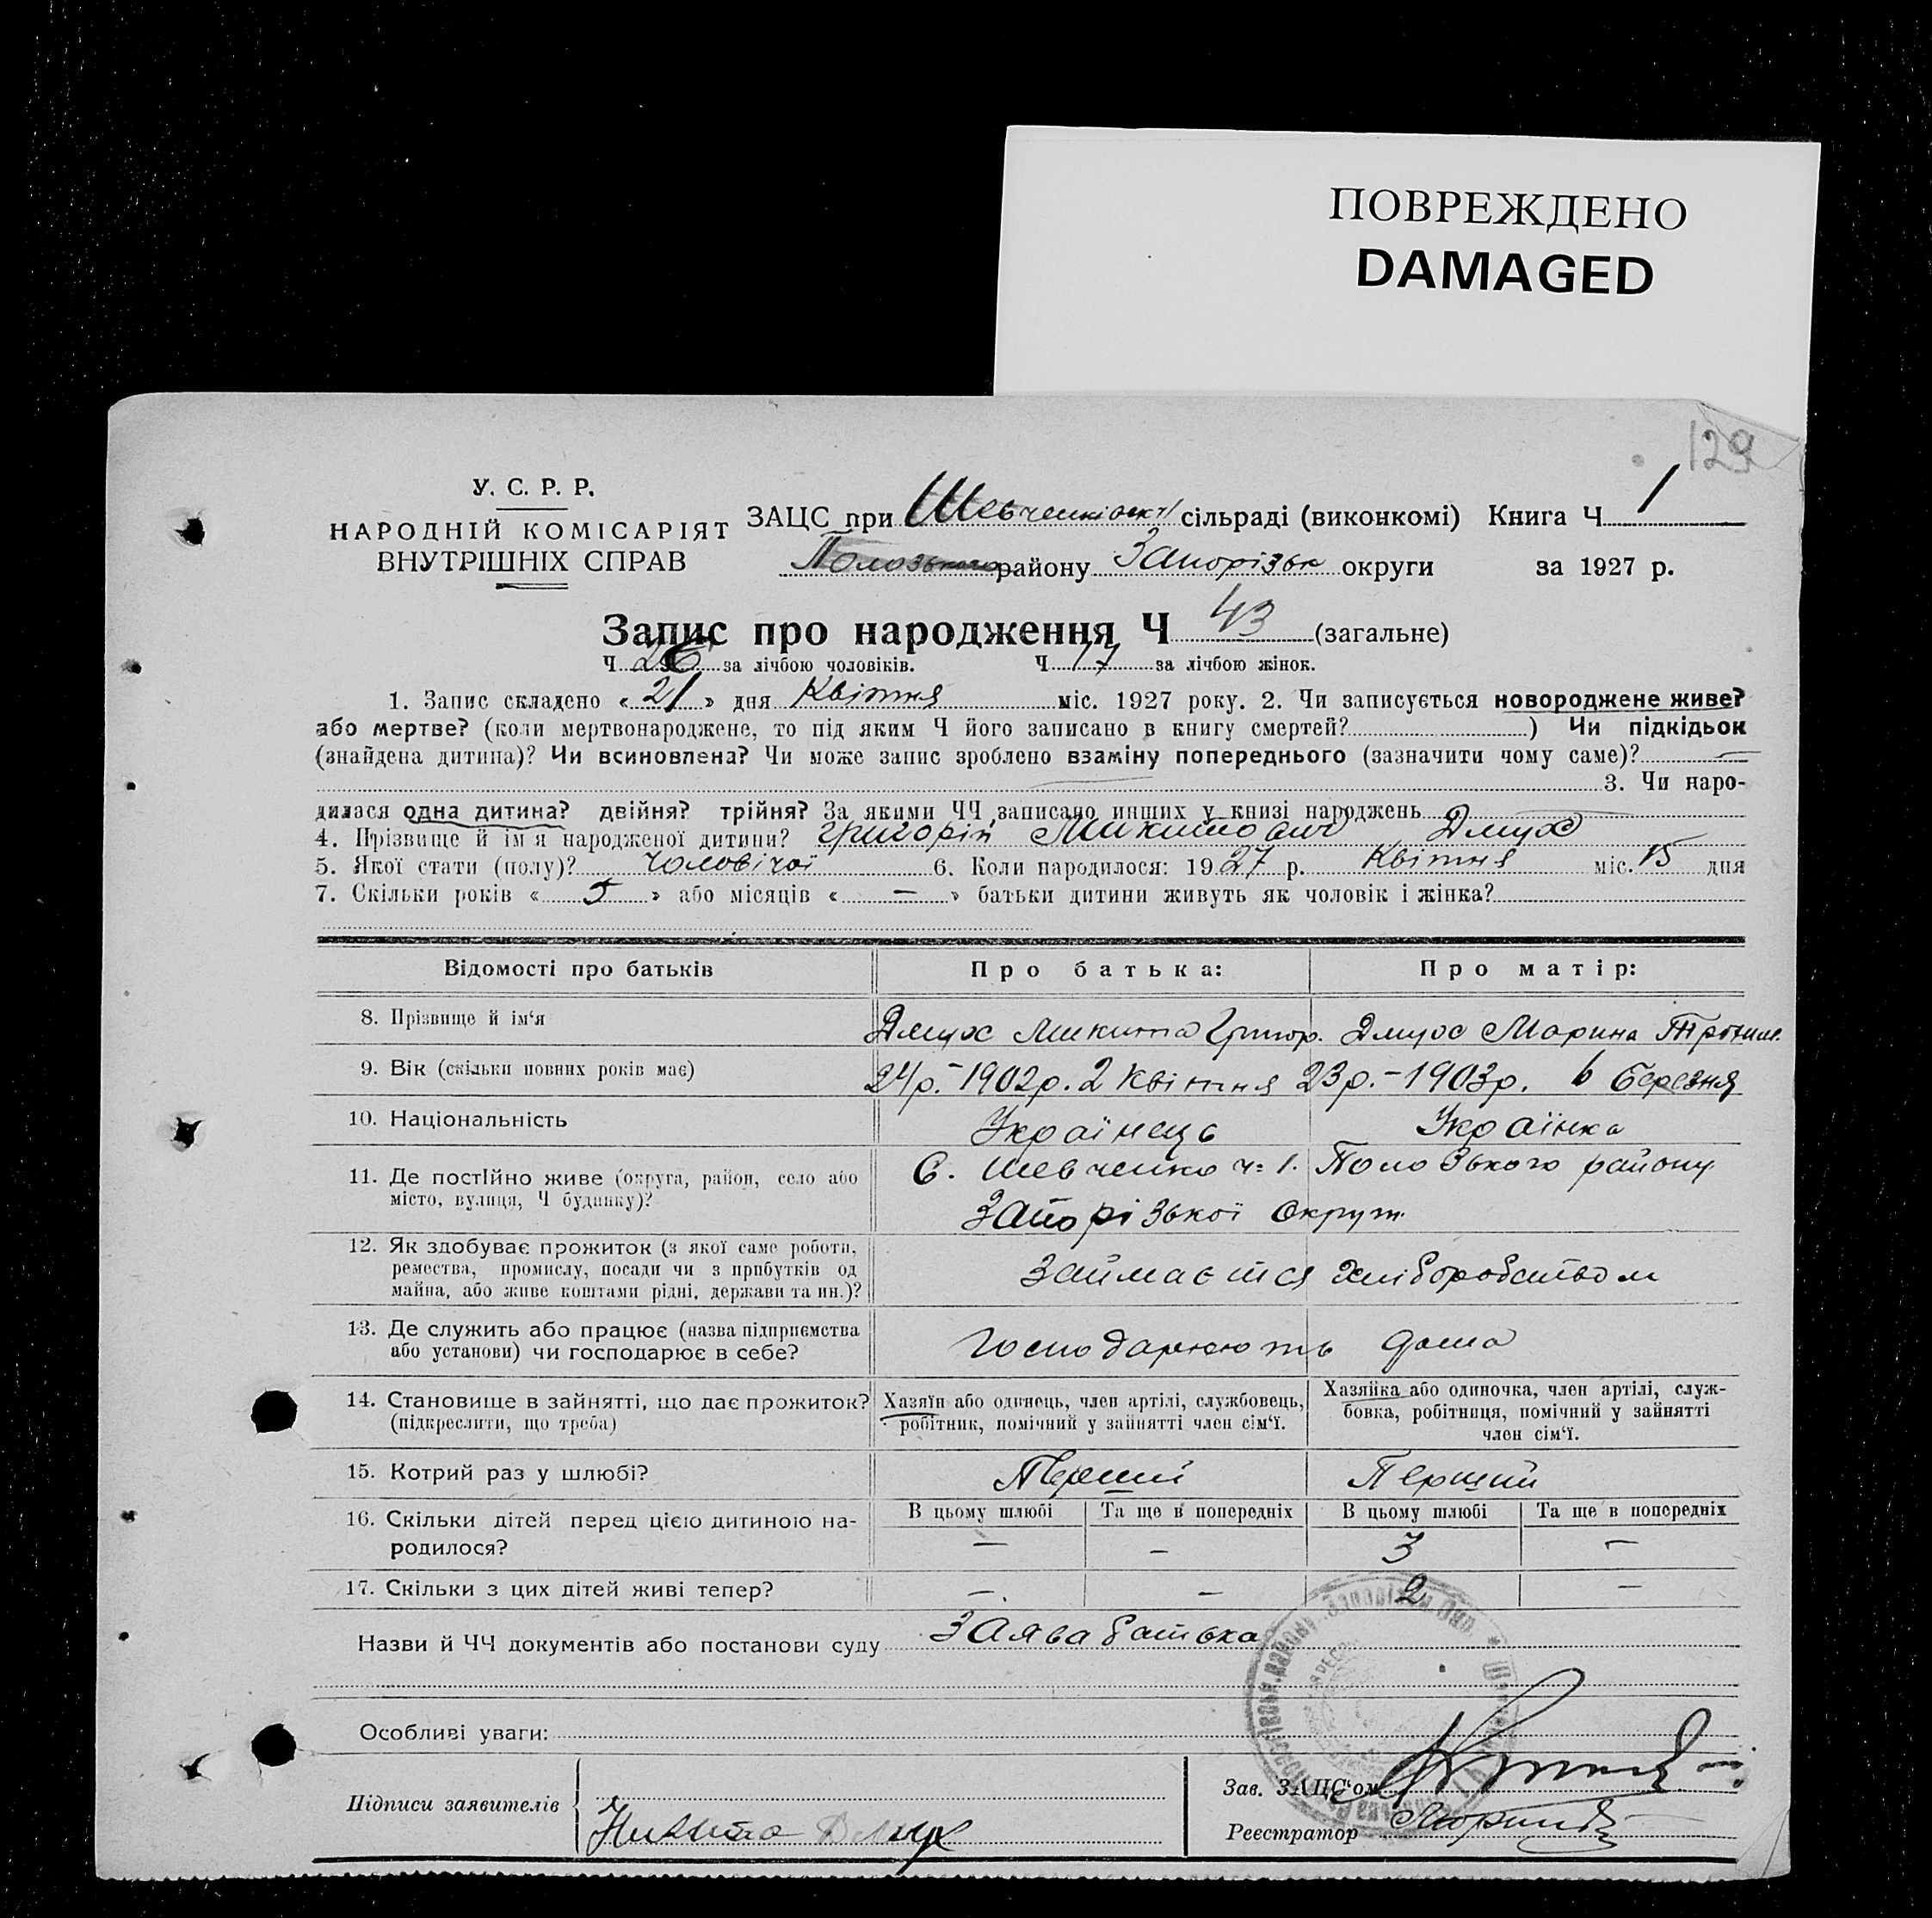 ПОВРЕЖДЕНО
DAMAGED
129
У. С. Р. Р.
НАРОДНІЙ КОМІСАРІЯТ
ВНУТРІШНІХ СПРАВ
ЗАЦС при Шевченківськ сільраді (виконкомі) Книга Ч 1
Полозького району Запорізьк округи за 1927 р.
Запис про народження Ч 43 (загальне)
Ч 26 за лічбою чоловіків. Ч 17 за лічбою жінок.
1. Запис складено « 21 » дня Квітня міс. 1927 року. 2. Чи записується новороджене живе?
або мертве? (коли мертвонароджене, то під яким Ч його записано в книгу смертей? ) Чи підкідьок
(знайдена дитина)? Чи всиновлена? Чи може запис зроблено взаміну попереднього (зазначити чому саме)? —
3. Чи наро-
дилася одна дитина? двійня? трійня? За якими ЧЧ записано инших у книзі народжень
4. Прізвище й ім'я народженої дитини? Григорій Микитович Дмух
5. Якої стати (полу)? чоловічої 6. Коли народилося: 1927 р. Квітня міс. 15 дня
7. Скільки років « 5 » або місяців « — » батьки дитини живуть як чоловік і жінка?
Відомості про батьків Про батька: Про матір:
8. Прізвище й ім'я Дмух Микита Григор. Дмух Марина
9. Вік (скільки повних років має) 24р.-1902р. 2 Квітня 23р.-1903р. 6 Березня
10. Національність Українець Українка
11. Де постійно живе (округа, район, село або
місто, вулиця, Ч будинку)?
С. Шевченко ч. 1. Полозького району
Запорізької округи
12. Як здобуває прожиток (з якої саме роботи,
ремества, промислу, посади чи з прибутків од
майна, або живе коштами рідні, держави та ин.)?
Займаєтся хліборобством
13. Де служить або працює (назва підприємства
або установи) чи господарює в себе?
Господарюють дома
14. Становище в зайнятті, що дає прожиток?
(підкреслити, що треба)
Хазяїн або одинець, член артілі, службовець,
робітник, помічний у зайнятті член сім'ї.
Хазяйка або одиночка, член артілі, служ-
бовка, робітниця, помічний у зайнятті
член сім'ї.
15. Котрий раз у шлюбі? Перший Перший
16. Скільки дітей перед цією дитиною на-
родилося?
В цьому шлюбі Та ще в попередніх В цьому шлюбі Та ще в попередніх
— — 3 —
17. Скільки з цих дітей живі тепер? — — 2 —
Назви й ЧЧ документів або постанови суду Заява батька
Особливі уваги:
Підписи заявителів Никита Дмух
Зав. ЗАЦС'ом
Реєстратор